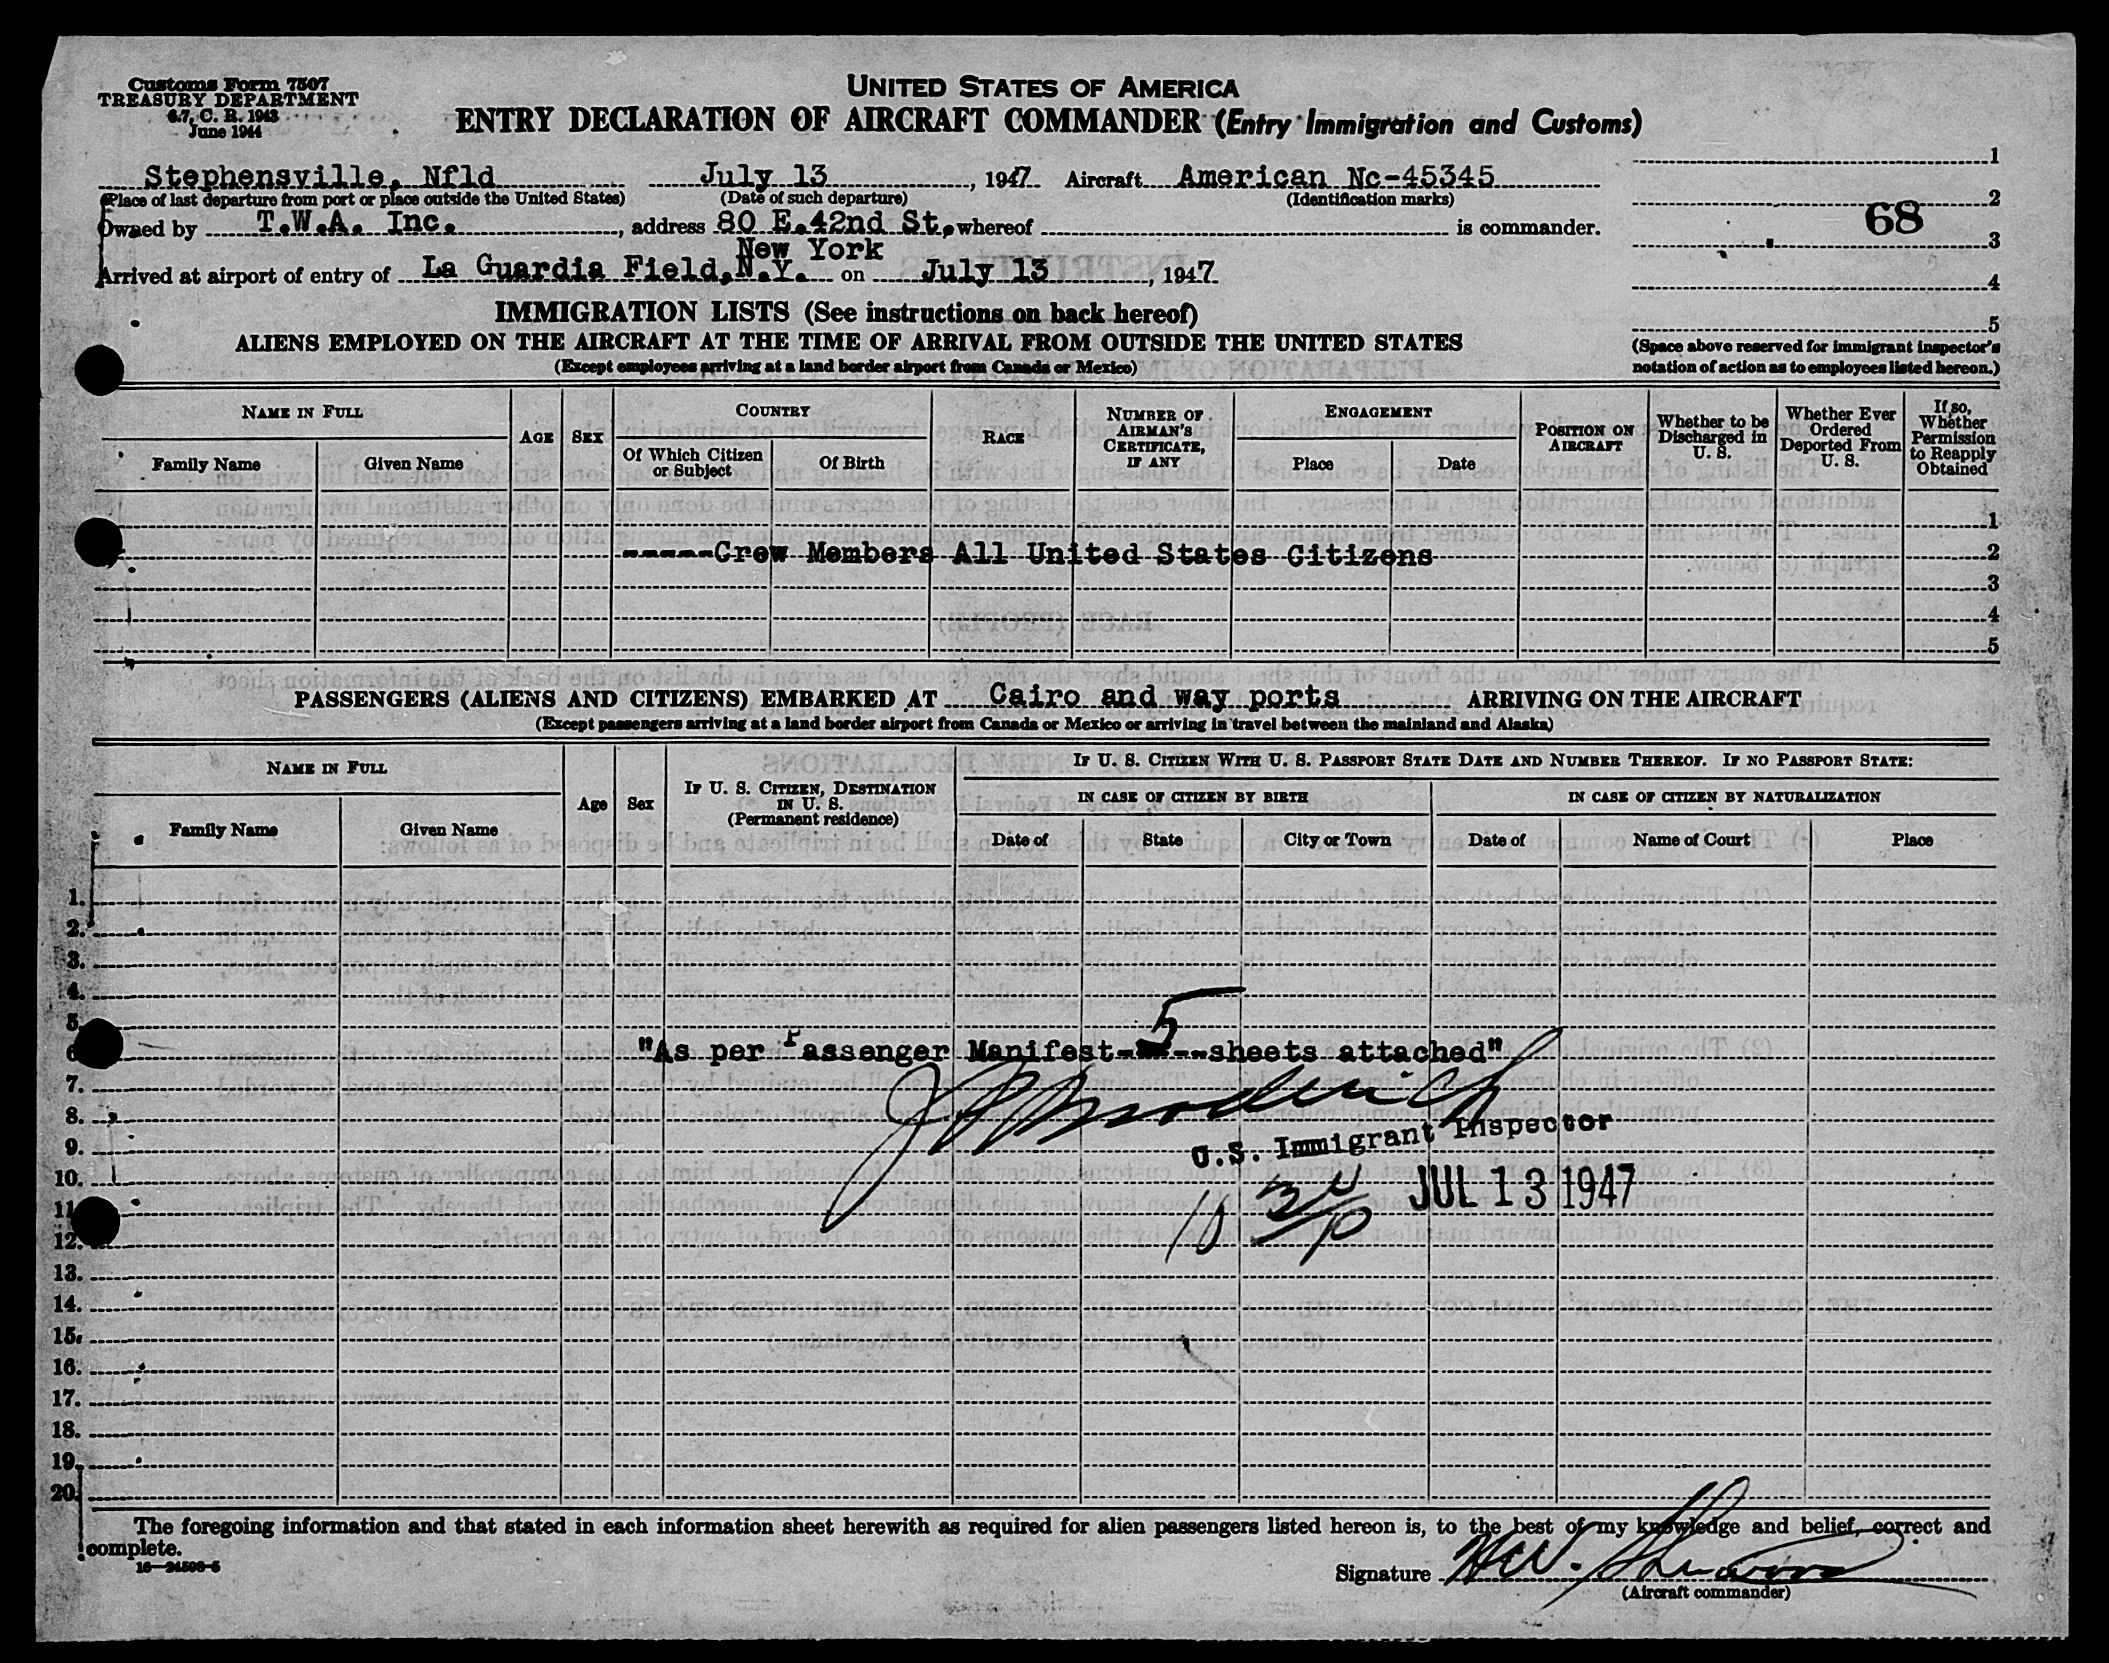 Customs Form 7507
TREASURY DEPARTMENT
6.7, C. R. 1943
June 1944
UNITED STATES OF AMERICA
ENTRY DECLARATION OF AIRCRAFT COMMANDER (Entry Immigration and Customs)
Stephensville, Nfld July 13, 1947 Aircraft American Nc-45345
(Place of last departure from port or place outside the United States) (Date of such departure) (Identification marks)
Owned by T.W.A. Inc., address 80 E.42nd St, whereof is commander.
New York
Arrived at airport of entry of La Guardia Field, N.Y. on July 13, 1947
1
2
68
3
4
5
(Space above reserved for immigrant inspector's
notation of action as to employees listed hereon.)
IMMIGRATION LISTS (See instructions on back hereof)
ALIENS EMPLOYED ON THE AIRCRAFT AT THE TIME OF ARRIVAL FROM OUTSIDE THE UNITED STATES
(Except employees arriving at a land border airport from Canada or Mexico)
NAME IN FULL
Family Name Given Name
AGE
SEX
COUNTRY
Of Which Citizen or Subject
Of Birth
RACE
NUMBER OF AIRMAN'S CERTIFICATE, IF ANY
ENGAGEMENT
Place Date
POSITION ON AIRCRAFT
Whether to be Discharged in U. S.
Whether Ever Ordered Deported From U. S.
If so, Whether Permission to Reapply Obtained
1
-----Crew Members All United States Citizens 2
3
4
5
PASSENGERS (ALIENS AND CITIZENS) EMBARKED AT Cairo and way ports ARRIVING ON THE AIRCRAFT
(Except passengers arriving at a land border airport from Canada or Mexico or arriving in travel between the mainland and Alaska)
NAME IN FULL
Family Name Given Name
Age
Sex
IF U. S. CITIZEN, DESTINATION IN U. S.
(Permanent residence)
IF U. S. CITIZEN WITH U. S. PASSPORT STATE DATE AND NUMBER THEREOF. IF NO PASSPORT STATE:
IN CASE OF CITIZEN BY BIRTH IN CASE OF CITIZEN BY NATURALIZATION
Date of State City or Town Date of Name of Court Place
1.
2.
3.
4.
5.
6. "As per Passenger Manifest-5--sheets attached"
7.
8.
U.S. Immigrant Inspector
9.
10.
JUL 13 1947
11.
12.
13.
14.
15.
16.
17.
18.
19.
20.
The foregoing information and that stated in each information sheet herewith as required for alien passengers listed hereon is, to the best of my knowledge and belief, correct and
complete.
16—24598-5
Signature
(Aircraft commander)